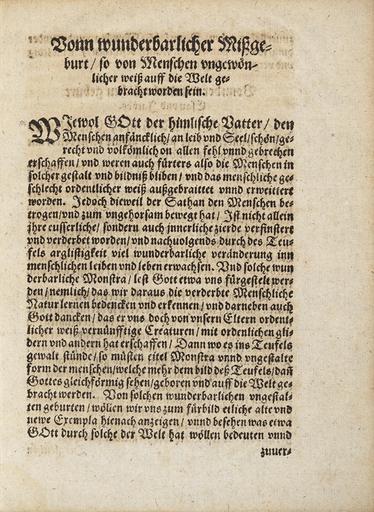 Vonn wunderbarlicher Mißge-
burt / so von Menschen vngewön-
licher weiß auff die Welt ge-
bracht worden sein.
WIewol GOtt der himlische Vatter / den
Menschen anfäncklich / an leib vnd Seel / schön / ge-
recht vnd volkömlich on allen fehl vnnd gebrechen
erschaffen / vnd weren auch fürters also die Menschen in
solcher gestalt vnd bildniß bliben / vnd das menschliche ge-
schlecht ordentlicher weiß außgebraittet vnnd erweittert
worden. Jedoch dieweil der Sathan den Menschen be-
trogen / vnd zum vngehorsam bewegt hat / Ist nicht allein
jhre eusserliche / sondern auch innerliche zierde verfinstert
vnd verderbet worden / vnd nachuolgends durch des Teu-
fels arglistigkeit viel wunderbarliche veränderung inn
menschlichen leiben vnd leben erwachsen. Vnd solche wun
derbarliche Monstra / lest Gott etwa vns fürgestelt wer-
den / nemlich / das wir daraus die verderbte Menschliche
Natur lernen bedencken vnd erkennen / vnd darneben auch
Gott dancken / das er vns doch von vnsern Eltern ordent-
licher weiß vernünfftige Creaturen / mit ordenlichen gli-
dern vnd andern hat erschaffen / Dann wo es ins Teufels
gewalt stünde / so müsten eitel Monstra vnnd vngestalte
form der menschen / welche mehr dem bild deß Teufels / dañ
Gottes gleichförmig sehen / geboren vnd auff die Welt ge-
bracht werden. Von solchen wunderbarlichen vngestal-
ten geburten / wöllen wir vns zum fürbild etliche alte vnd
newe Exempla hienach anzeigen / vnnd besehen was etwa
GOtt durch solche der Welt hat wöllen bedeuten vnnd
zuuer-